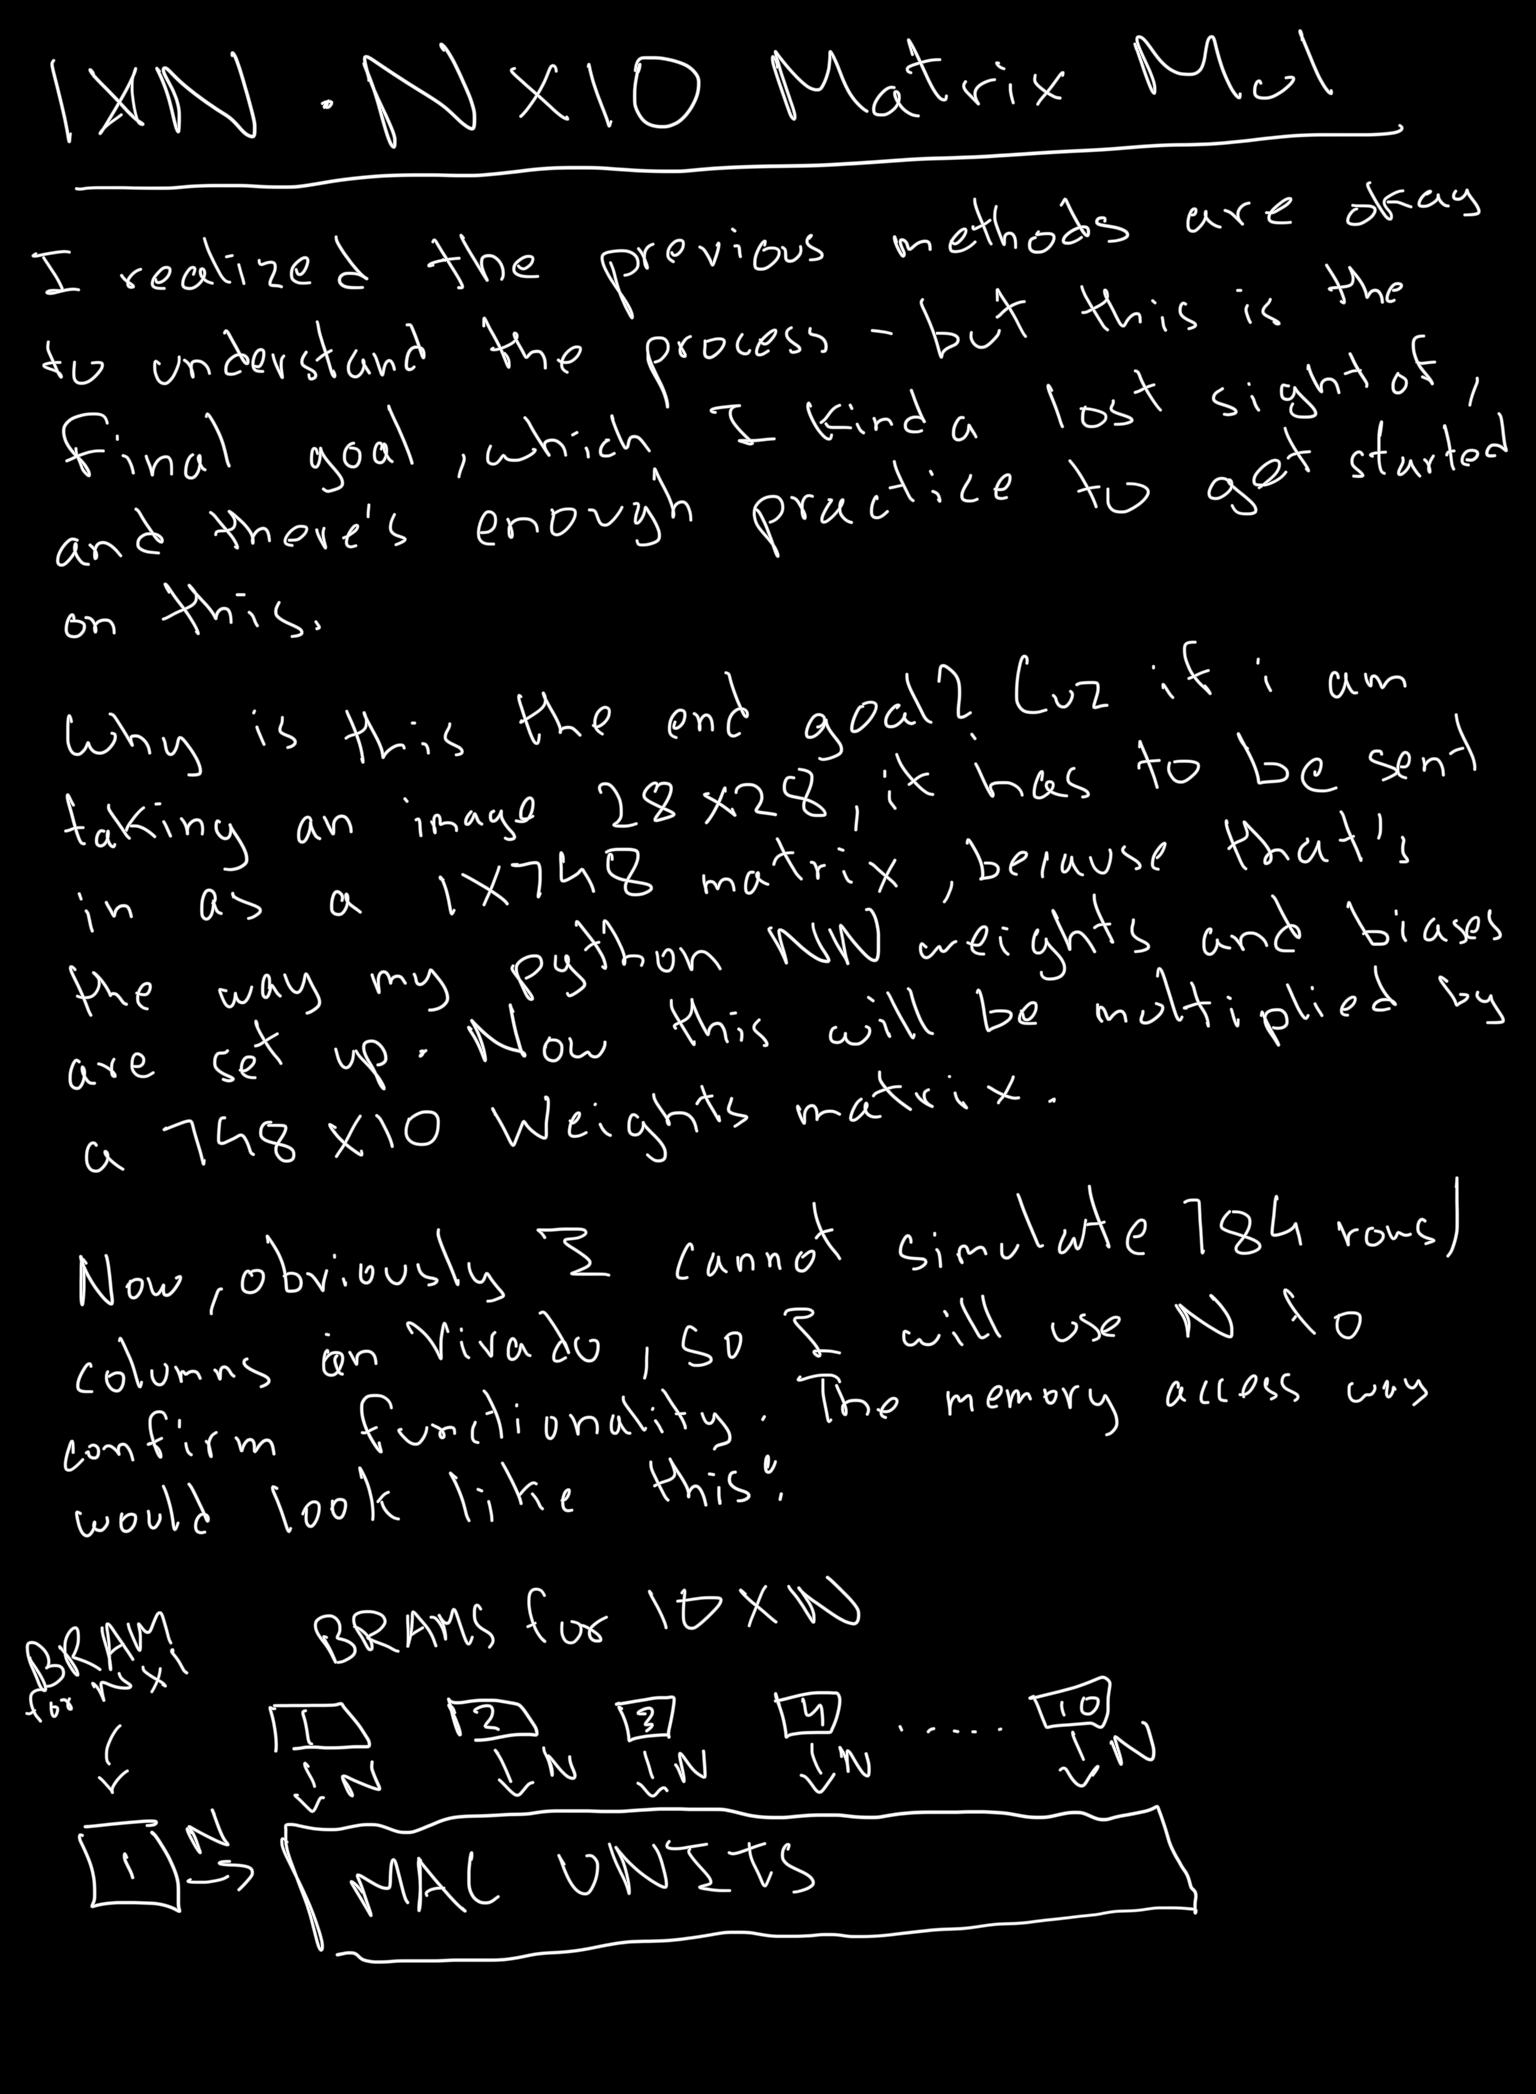 1XN . NX10 Matrix Mul
I realized the previous methods are okay
to understand the process - but this is the
final goal, which I kinda lost sight of,
and there's enough practice to get started
on this.
Why is this the end goal? Cuz if i am
taking an image 28x28, it has to be sent
in as a 1X748 matrix, because that's
the way my python NN weights and biases
are set up. Now this will be multiplied by
a 748X10 Weights matrix.
Now, obviously I cannot simulate 784 rows/
columns on Vivado, so I will use N to
confirm functionality. The memory access way
would look like this:
BRAM
for NX1
BRAMS for 10XN
1 2 3 4 ..... 10
N N N N N
1 N
MAC UNITS